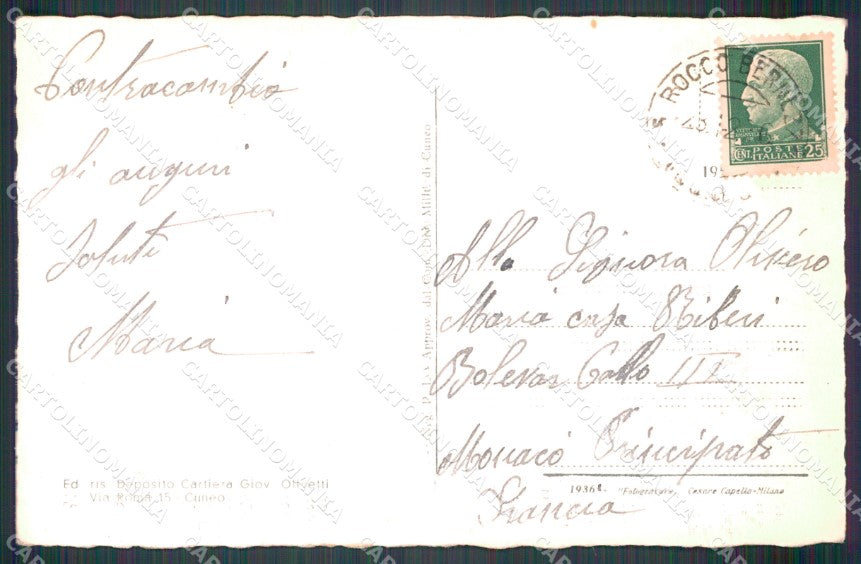 Contracambio
gli auguri
Saluti
Maria
Ed ris Deposito Cartiera Giov. Olivetti
Via Roma 15 - Cuneo
Approv. dal Com. Div. Milit. di Cuneo
ROCCO BERN
POSTE
ITALIANE
CENT. 25
Alla Signora Olivero
Maria casa Riberi
Bolevar Gallo III
Monaco Principato
Francia
1936 "Fotogravure" Cesare Capello-Milano
CARTOLINOMANIA